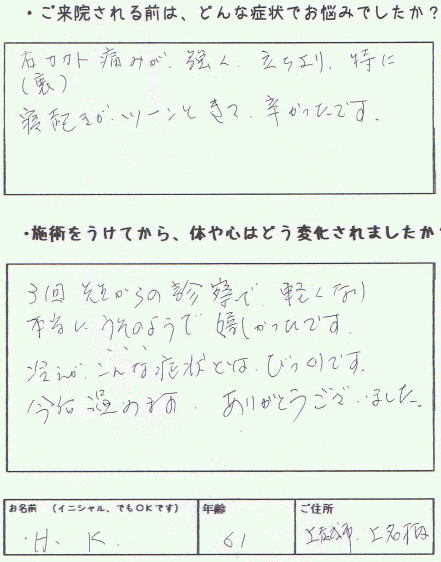 ・ご来院される前は、どんな症状でお悩みでしたか?
右カカト痛みが、強く、立ち上り、特に
(裏)
寝起きが、ツーンときて、辛かったです。
・施術をうけてから、体や心はどう変化されましたか
3回先生からの診察で、軽くなり
本当にうそのようで嬉しかったです。
冷えが、こんな症状とは、びっくりです。
今後温めます。ありがとうございました。
お名前 (イニシャル、でもOKです) 年齢 ご住所
H. K. 61